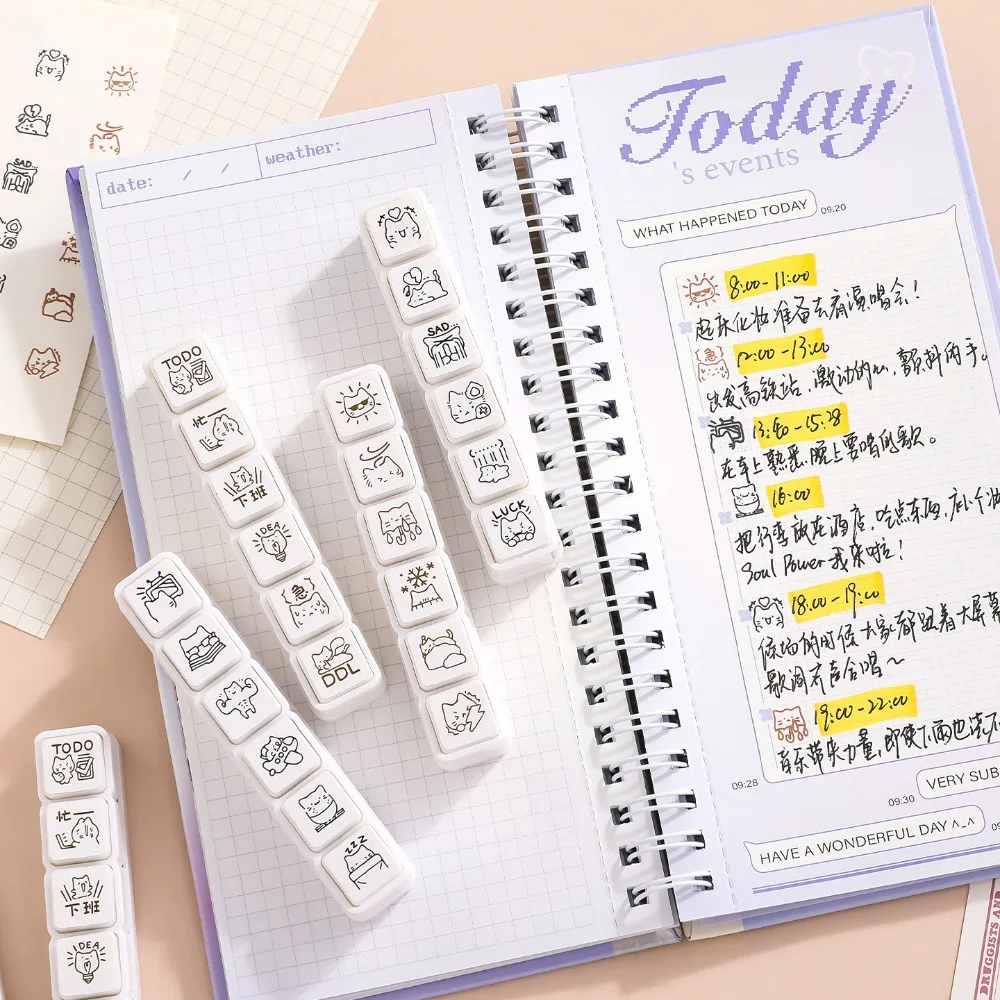 SAD
date: / / weather:
TODO
忙
下班
IDEA
急
DDL
SAD
LUCK
ZZZ
TODO
忙
下班
IDEA
Today
's events
WHAT HAPPENED TODAY
09:20
8:00-11:00
起床化妆准备去看演唱会!
急
12:00-13:00
出发高铁站,激动的心,颤抖的手。
13:40-15:28
在车上熟悉晚上要唱的歌。
16:00
把行李放在酒店,吃点东西,
Soul Power 我来啦!
18:00-19:00
候场的时候大家都跟着大屏幕
歌词齐声合唱~
19:00-22:00
音乐带来力量,即使下雨也
09:28
09:30
VERY SUB
HAVE A WONDERFUL DAY ^_^
DRUGGISTS AND